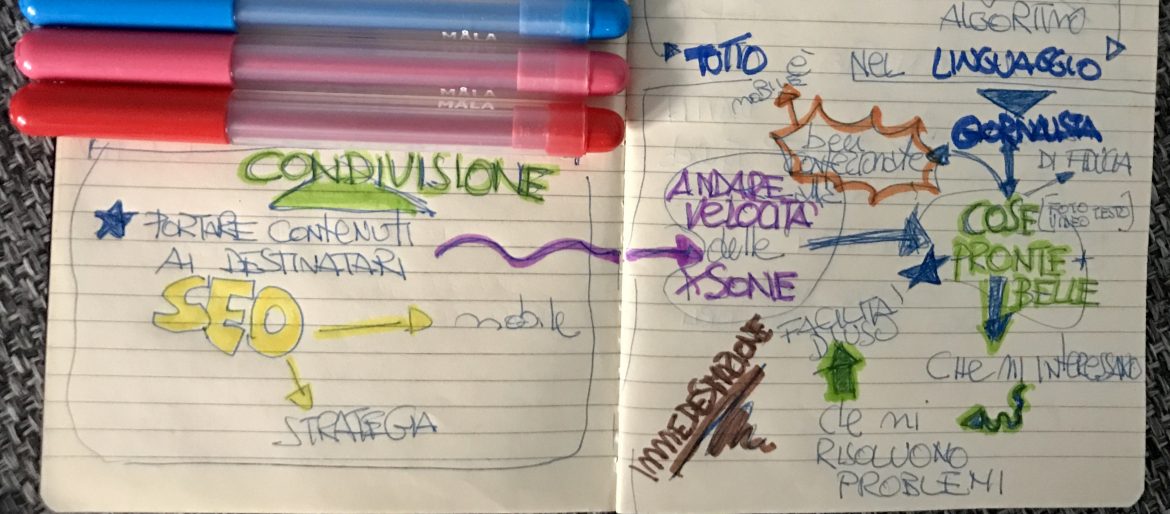 MÅLA
MÅLA
MÅLA
CONDIVISIONE
PORTARE CONTENUTI
AI DESTINATARI
SEO
mobile
STRATEGIA
ALGORITMO
TUTTO è NEL LINGUAGGIO
mobile
GIORNALISTA
ben
confezionate
DI FIDUCIA
ANDARE
VELOCITÀ
delle
XSONE
COSE (FOTO
VIDEO TESTO)
PRONTE
BELLE
FACILITÀ
D'USO
IMMEDESIMAZIONE
CHE MI INTERESSANO
che mi
RISOLVONO
PROBLEMI